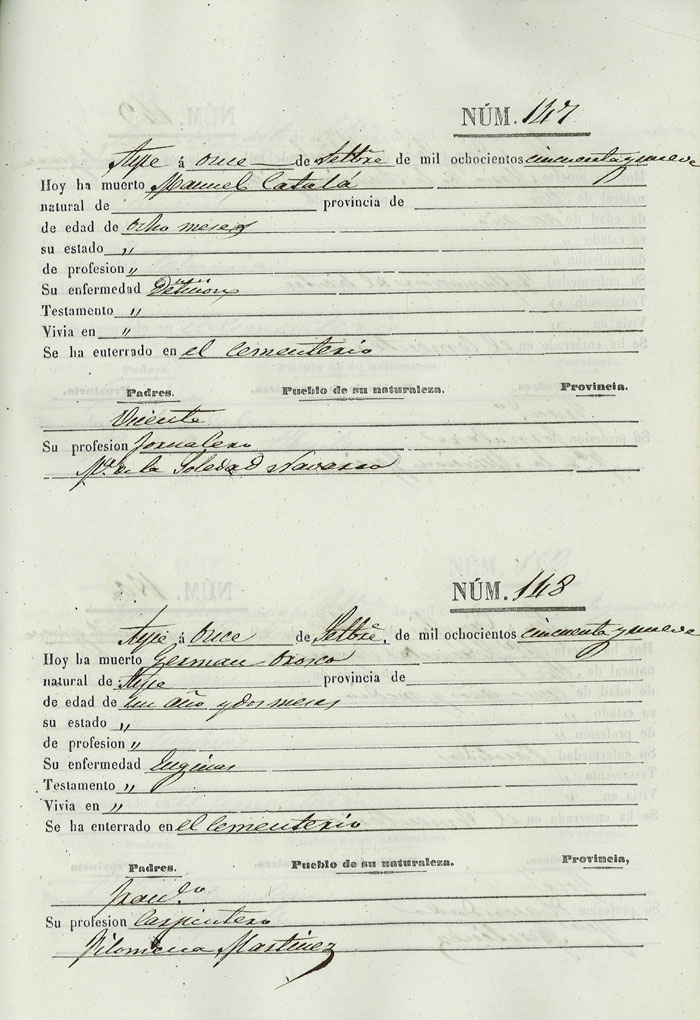 NÚM. 147
Aspe á once de Settbre de mil ochocientos cincuenta y nueve
Hoy ha muerto Manuel Catalá
natural de provincia de
de edad de ocho meses
su estado "
de profesion "
Su enfermedad Dentición
Testamento "
Vivia en "
Se ha enterrado en el Cementerio
Padres. Pueblo de su naturaleza. Provincia.
Vicente
Su profesion Jornalero
Mª de la Soledad Navarro
NÚM. 148
Aspe á Once de Settbre. de mil ochocientos cincuenta y nueve
Hoy ha muerto German Orosco
natural de Aspe provincia de
de edad de un año y dos meses
su estado "
de profesion "
Su enfermedad Anginas
Testamento "
Vivia en "
Se ha enterrado en el Cementerio
Padres. Pueblo de su naturaleza. Provincia,
Franco
Su profesion Carpintero
Filomena Martinez